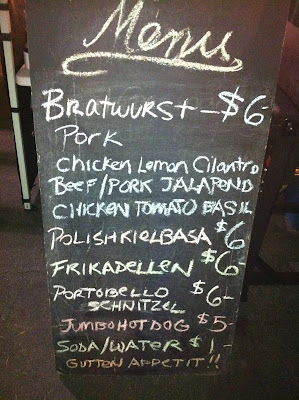 Menu
BRATWURST - $6
PORK
CHICKEN LEMON CILANTRO
BEEF/PORK JALAPENO
CHICKEN TOMATO BASIL
POLISH KIELBASA $6
FRIKADELLEN $6
PORTOBELLO $6-
SCHNITZEL
JUMBO HOT DOG $5-
SODA/WATER $1-
GUTTEN APPETIT!!